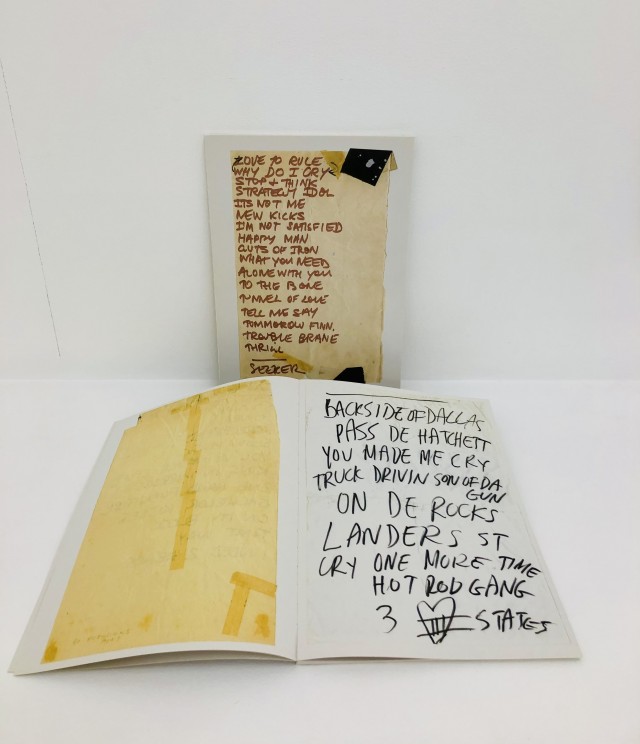 LOVE TO RULE
WHY DO I CRY
STOP + THINK
STRATEGY IDOL
ITS NOT ME
NEW KICKS
I'M NOT SATISFIED
HAPPY MAN
GUTS OF IRON
WHAT YOU NEED
ALONE WITH YOU
TO THE BONE
TUNNEL OF LOVE
TELL ME SAY
TOMMOROW FINN.
TROUBLE BRANE
THRILL
SEEKER
BACKSIDE OF DALLAS
PASS DE HATCHETT
YOU MADE ME CRY
TRUCK DRIVIN SON OF DA
GUN
ON DE ROCKS
LANDERS ST
CRY ONE MORE TIME
HOT ROD GANG
3 STATES